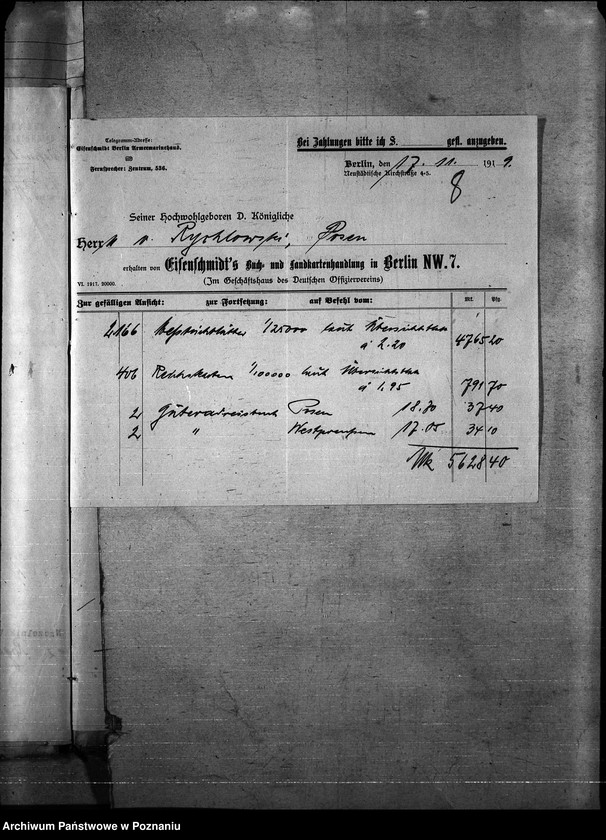 Telegramm-Adresse:
Eisenschmidt Berlin Armeemarinehaus.
Fernsprecher: Zentrum, 536.
Bei Zahlungen bitte ich S. gefl. anzugeben.
Berlin, den 17. 11. 1919.
Neustädtische Kirchstraße 4-5.
8
Seiner Hochwohlgeboren D. Königliche
Herrn v. Rychlowski, Posen
erhalten von Eisenschmidt's Buch- und Landkartenhandlung in Berlin NW. 7.
VI. 1917. 20000.
(Im Geschäftshaus des Deutschen Offiziervereins)
Zur gefälligen Ansicht: zur Fortsetzung: auf Befehl vom: Mk. Pfg.
2166 Messtischblätter 1/25000 laut Übersichtskarte
á 2.20 4765 20
406 1/100000 laut Übersichtskarte
á 1.95 791 70
2 Güteradressbuch Posen 18.70 37 40
2 " Westpreußen 17.05 34 10
Mk 5628 40
Archiwum Państwowe w Poznaniu